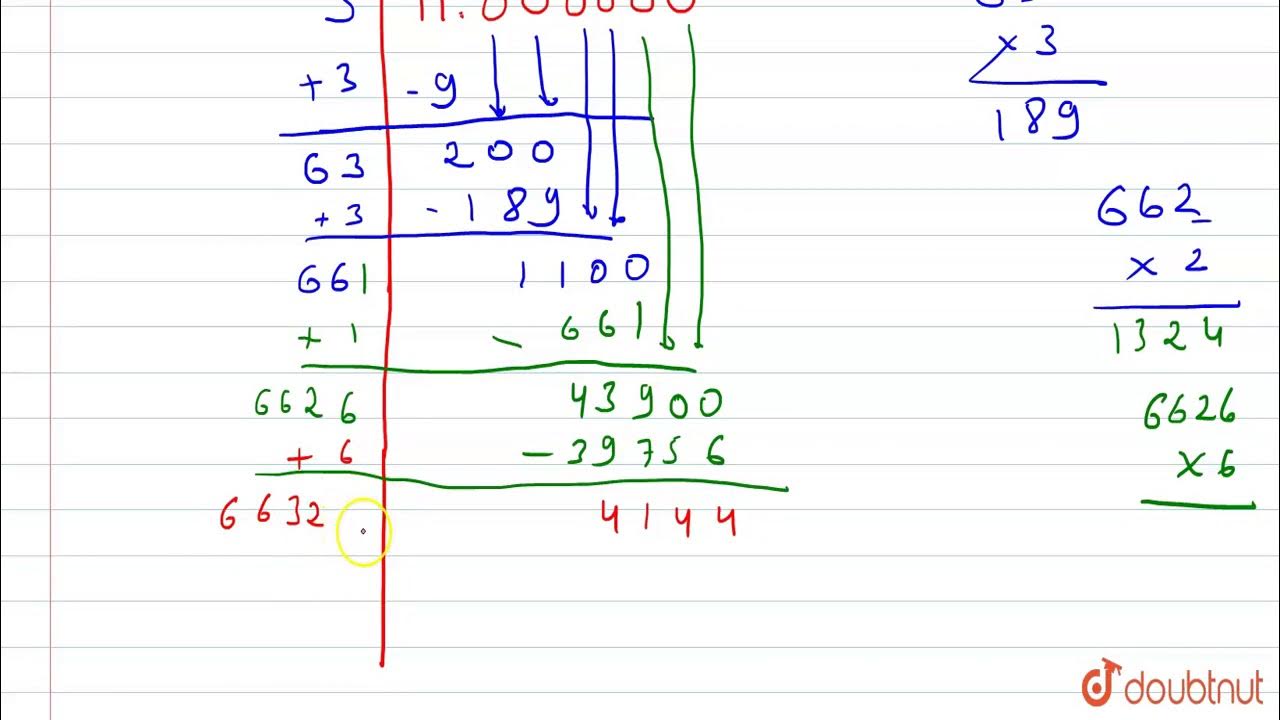 3 11.000000
+3 -9
63 200
+3 -189
661 1100
+1 -661
6626 43900
+6 -39756
6632 4144
x 3
189
662
x 2
1324
6626
x 6
doubtnut